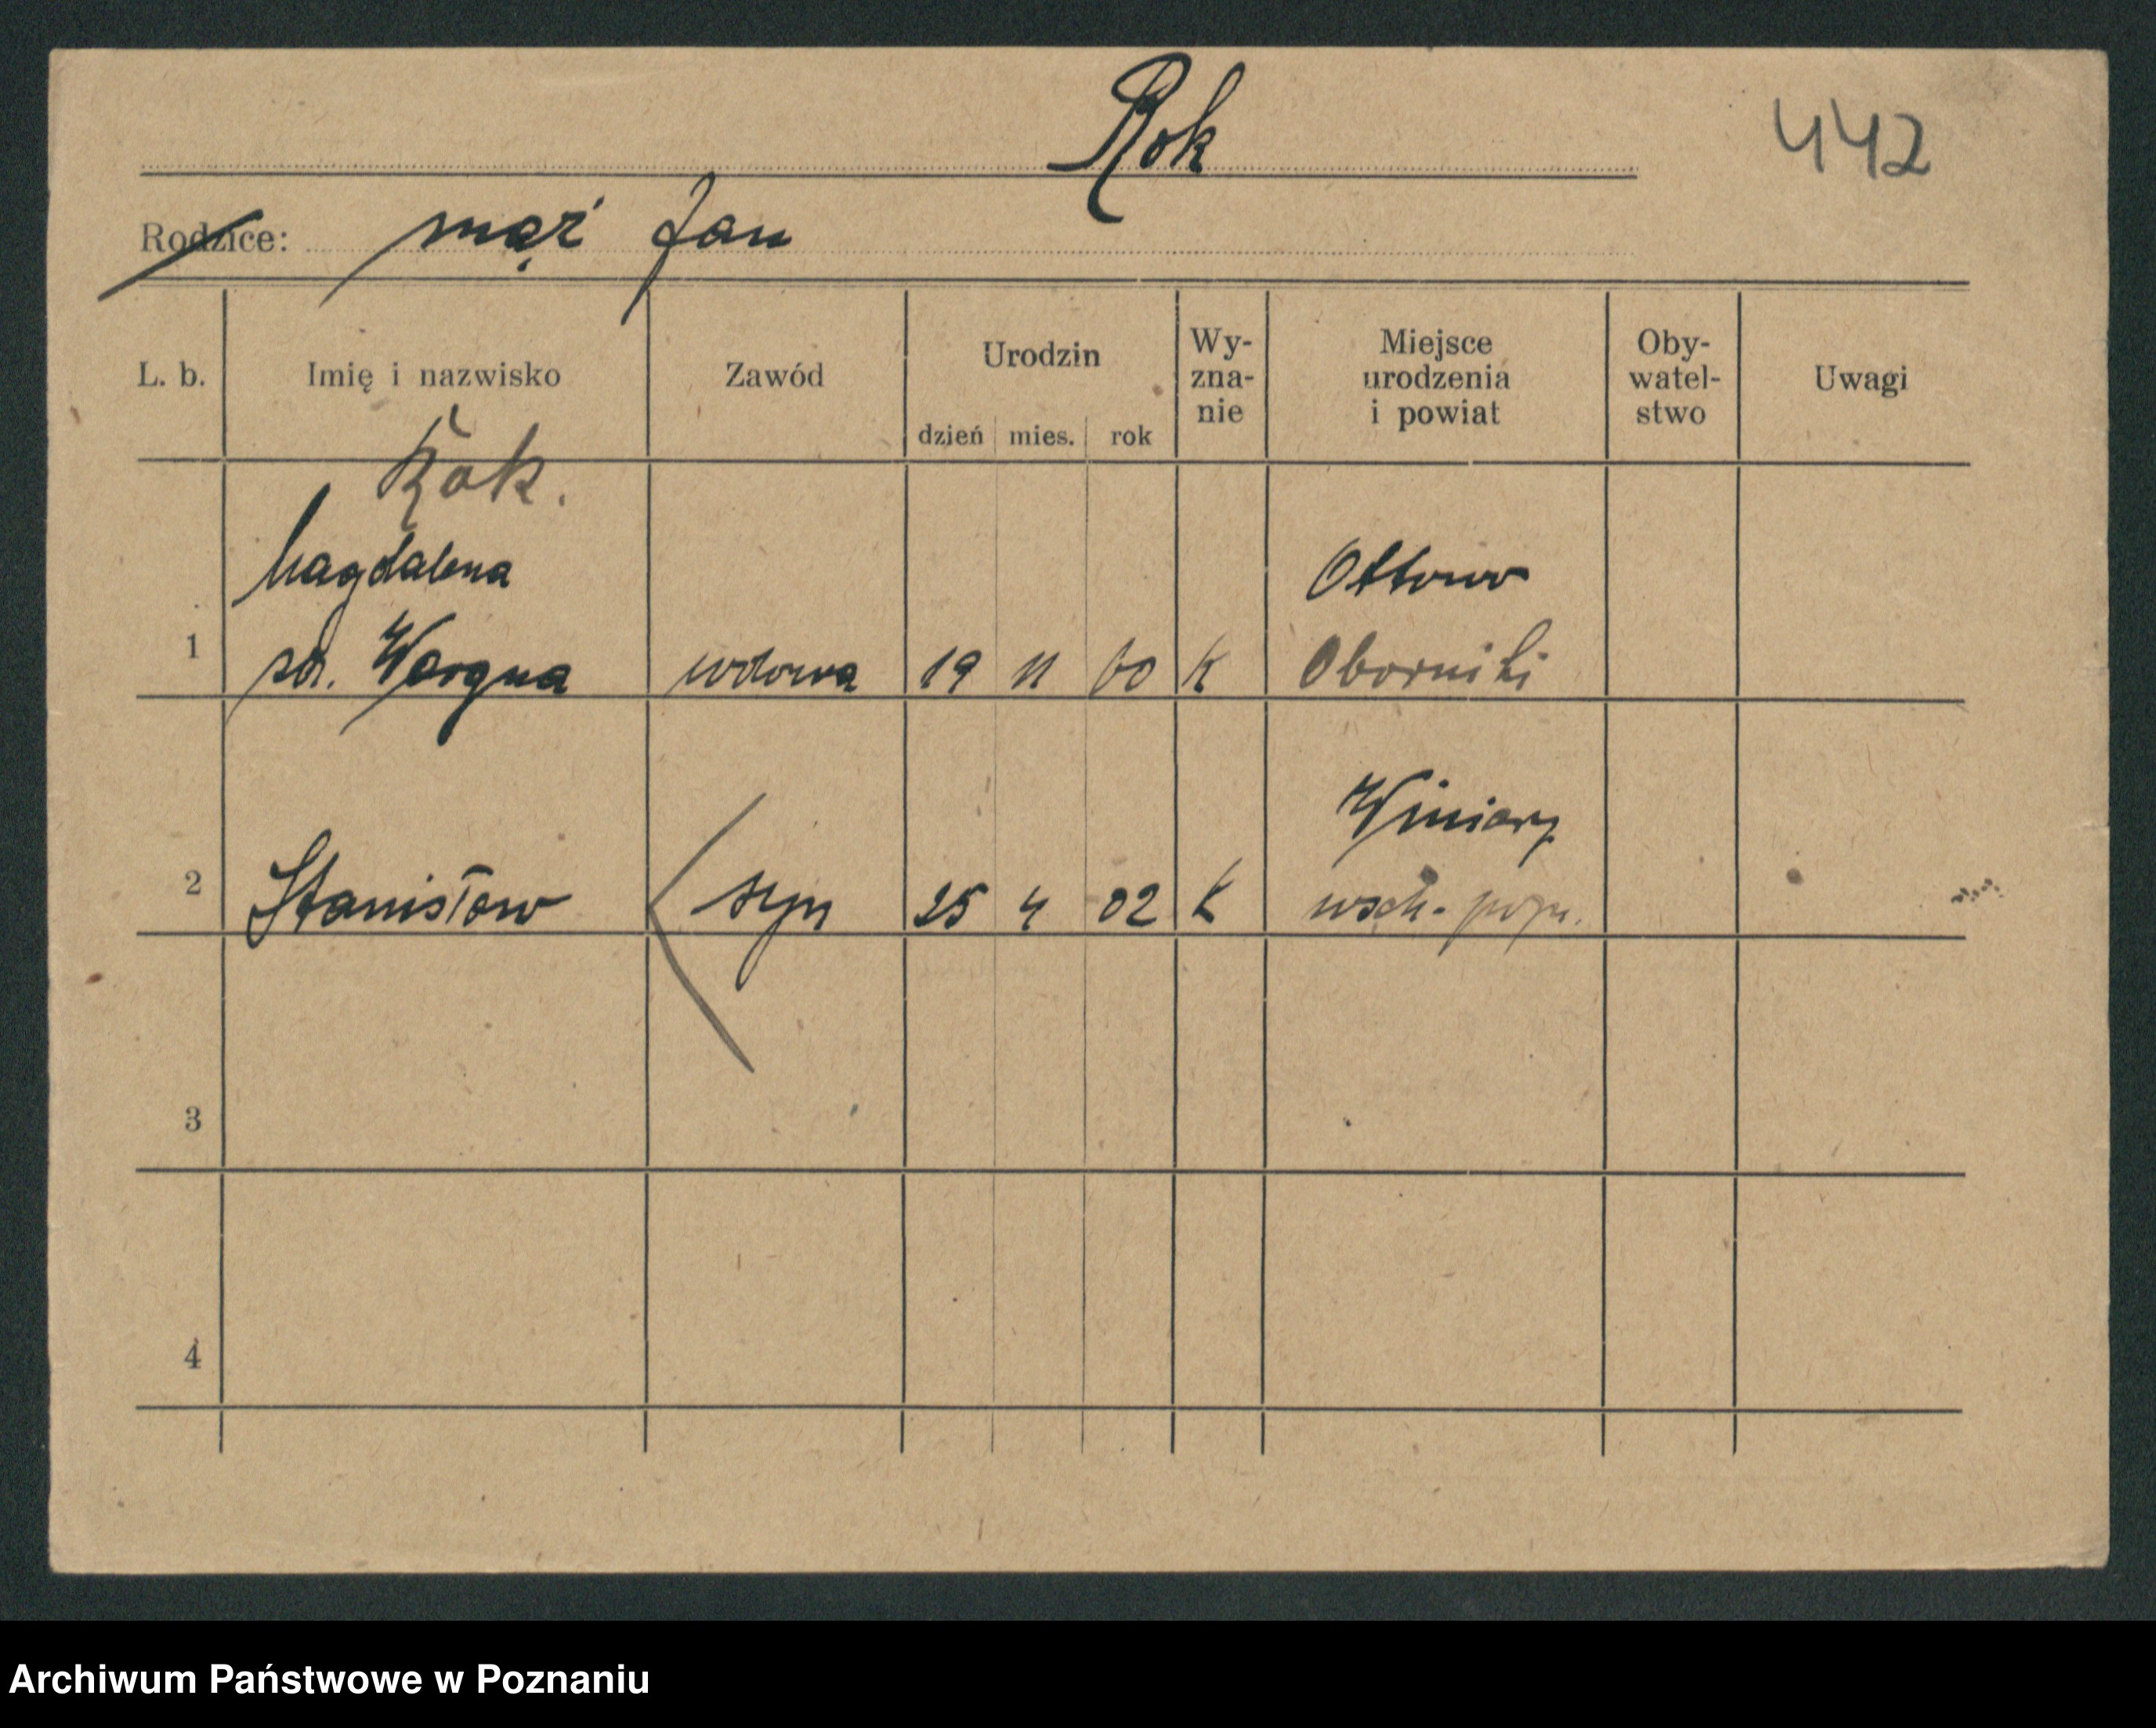 Rok
442
Rodzice: mąż Jan
L. b.
Imię i nazwisko
Zawód
Urodzin
dzień mies. rok
Wy-
zna-
nie
Miejsce
urodzenia
i powiat
Oby-
watel-
stwo
Uwagi
Rok.
Magdalena Ottowo
1 zd. Wargua wdowa 19 11 60 K Oborniki
Winiary
2 Stanisław syn 25 4 02 K wsch-pozn.
3
4
Archiwum Państwowe w Poznaniu